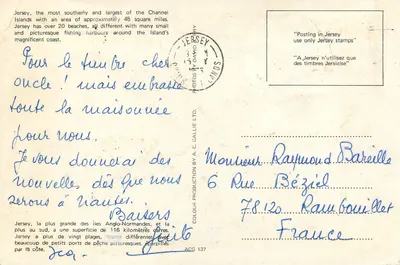 Jersey, the most southerly and largest of the Channel
Islands with an area of approximately 45 square miles.
Jersey has over 20 beaches, all different with many small
and picturesque fishing harbours around the Island's
magnificent coast.
Pour le timbre cher
oncle ! mais embrasse
toute la maisonnée
pour nous.
Je vous donnerai des
nouvelles dès que nous
serons à Nantes.
Baisers
Jersey, la plus grande des îles Anglo-Normandes, et la
plus au sud, a une superficie de 116 kilomètres carrés.
Jersey a plus de vingt plages, différentes
beaucoup de petits ports de pêche pittoresques,
par
COLOUR PRODUCTION BY A. E. GALLIE LTD.
ACG 137
JERSEY
"Posting in Jersey
use only Jersey stamps"
"A Jersey n'utilisez que
des timbres Jersiaise"
Monsieur Raymond Bareille
6 Rue Béziel
78120 Rambouillet
France